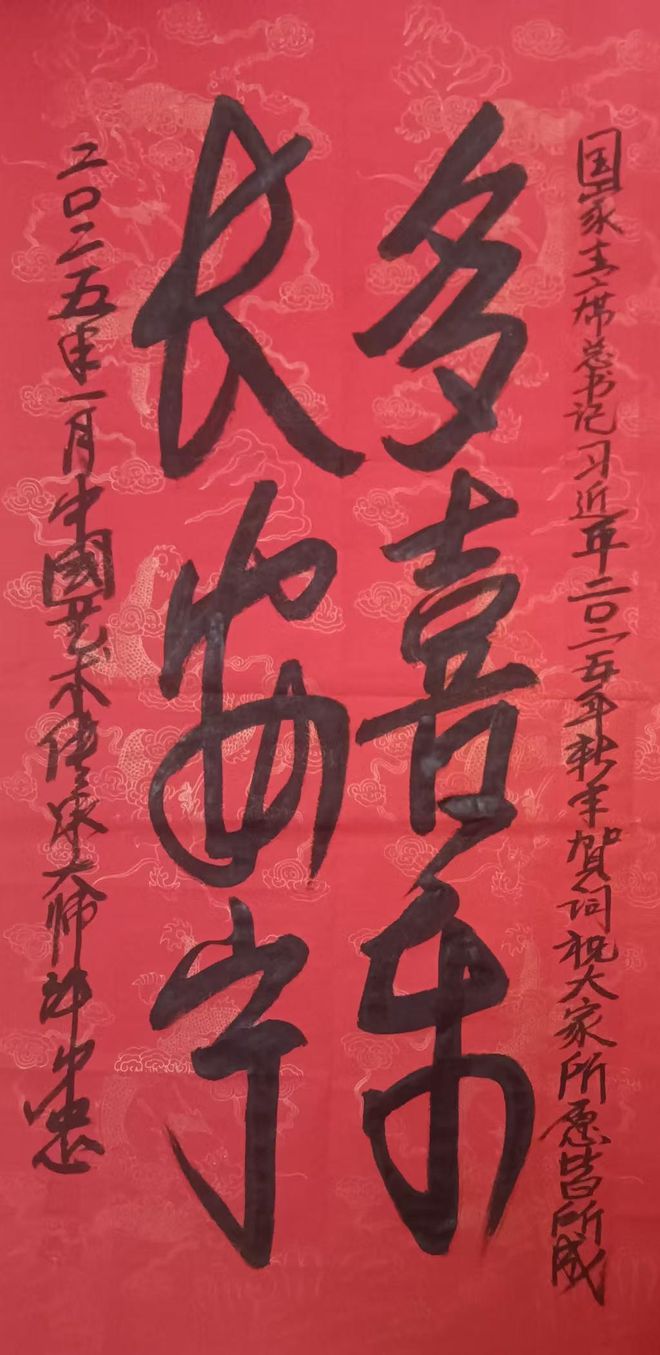 国家主席总书记习近平二〇二五年新年贺词祝大家所愿皆所成
多喜乐
长安宁
二〇二五年一月中國艺术传承大师许忠